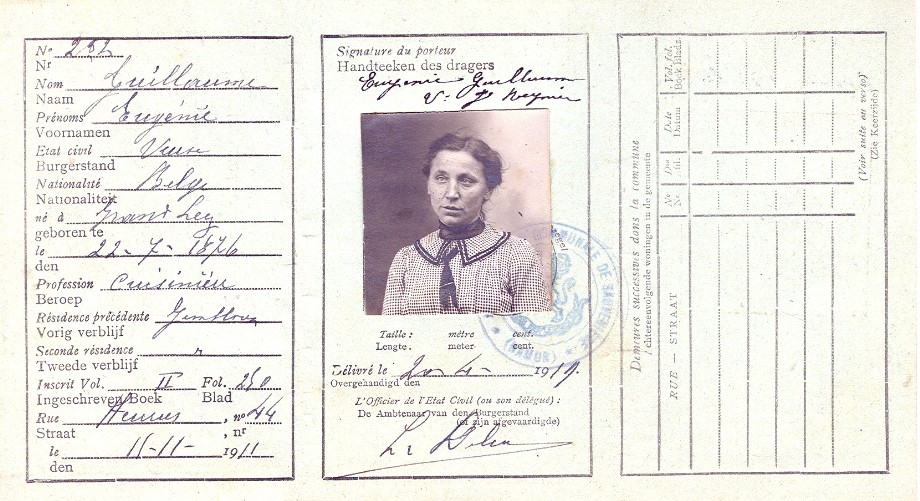 N° 232
Nr
Nom Guillaume
Naam
Prénoms Eugénie
Voornamen
Etat civil Veuve
Burgerstand
Nationalité Belge
Nationaliteit
né à Grand Leez
geboren te
le 22-7-1876
den
Profession Cuisinière
Beroep
Résidence précédente Gembloux
Vorig verblijf
Seconde résidence
Tweede verblijf
Inscrit Vol. II Fol. 250
Ingeschreven Boek Blad
Rue , n° 44
Straat , nr
le 11-11- 1911
den
Signature du porteur
Handteeken des dragers
Eugénie Guillaume
V.
Taille : mètre cent.
Lengte. meter cent.
Délivré le 20-4- 1919.
Overgehandigd den
L'Officier de l'Etat Civil (ou son délégué) :
De Ambtenaar van den Burgerstand
(of zijn afgevaardigde)
COMMUNALE DE
(NAMUR)
Demeures successives dans la commune
Achtereenvolgende woningen in de gemeente
RUE — STRAAT
N°
Nr
Du
Date
Datum
Vol. fol.
Boek Bladz.
(Voir suite au verso)
(Zie Keerzijde)